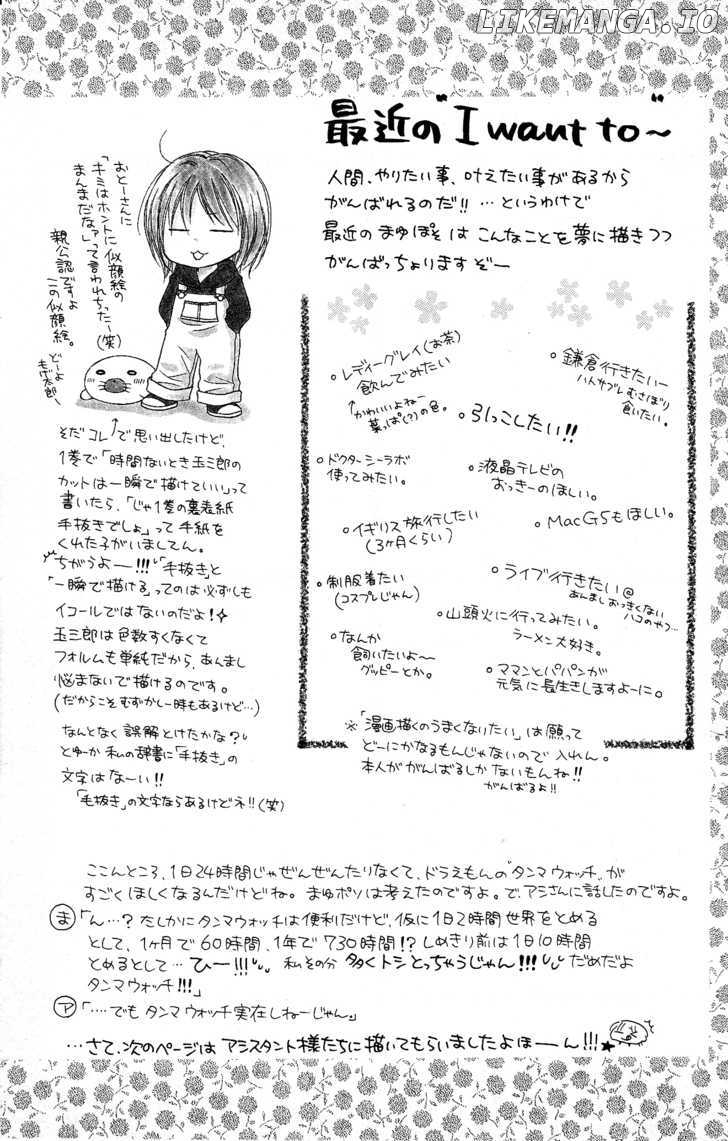 LIKEMANGA.IO
最近の"I want to"〜
人間、やりたい事、叶えたい事があるから
がんばれるのだ!! …というわけで
最近の まゆぽそは こんなことを夢に描きつつ
がんばっちょりますぞー
おとーさんに
「キミはホントに似顔絵の
まんまだなァ」って言われちったー(笑)
親公認ですよ
この似顔絵。
どーよ
もげ太郎〜
そだ コレ↑で思い出したけど、
1巻で「時間ないとき玉三郎の
カットは一瞬で描けていい」って
書いたら、「じゃ1巻の裏表紙
手抜きでしょ」って手紙を
くれた子がいましてん。
ちがうよー!!!「手抜き」と
「一瞬で描ける」ってのは必ずしも
イコールではないのだよ!
玉三郎は色数すくなくて
フォルムも単純だから、あんまし
悩まないで描けるのです。
(だからこそむずかしー時もあるけど…)
なんとなく誤解とけたかな?
とゆーか私の辞書に「手抜き」の
文字はなーい!!
「毛抜き」の文字ならあるけどネ!!(笑)
○レディーグレイ(お茶)
飲んでみたい
↑かわいいよねー
葉っぱ(?)の色。
○鎌倉行きたいー
ハトサブレむさぼり
食いたい。
○引っこしたい!!
○ドクターシーラボ
使ってみたい。
○液晶テレビの
おっきーのほしい。
○イギリス旅行したい
(3ヶ月くらい)
○MacG5もほしい。
○制服着たい
(コスプレじゃん)
○ライブ行きたい@
あんましおっきくない
ハコのやつ…
○山頭火に行ってみたい。
ラーメン大好き。
○なんか
飼いたいよ〜
グッピーとか。
○ママンとパパンが
元気に長生きしますよーに。
※「漫画描くのうまくなりたい」は願って
どーにかなるもんじゃないので入れん。
本人ががんばるしかないもんね!!
がんばるよ!!
ここんところ、1日24時間じゃぜんぜんたりなくて、ドラえもんの"タンマウォッチ"が
すごくほしくなるんだけどね。まゆポソは考えたのですよ。で、アシさんに話したのですよ。
ま「ん…?たしかにタンマウォッチは便利だけど、仮に1日2時間世界をとめる
として、1ヶ月で60時間、1年で730時間!?しめきり前は1日10時間
とめるとして…ひー!!! 私その分 多くトシとっちゃうじゃん!!! だめだよ
タンマウォッチ!!!」
ア「‥‥でもタンマウォッチ実在しねーじゃん。」
…さて、次のページは アシスタント様たちに描いてもらいましたよほーーん!!!★